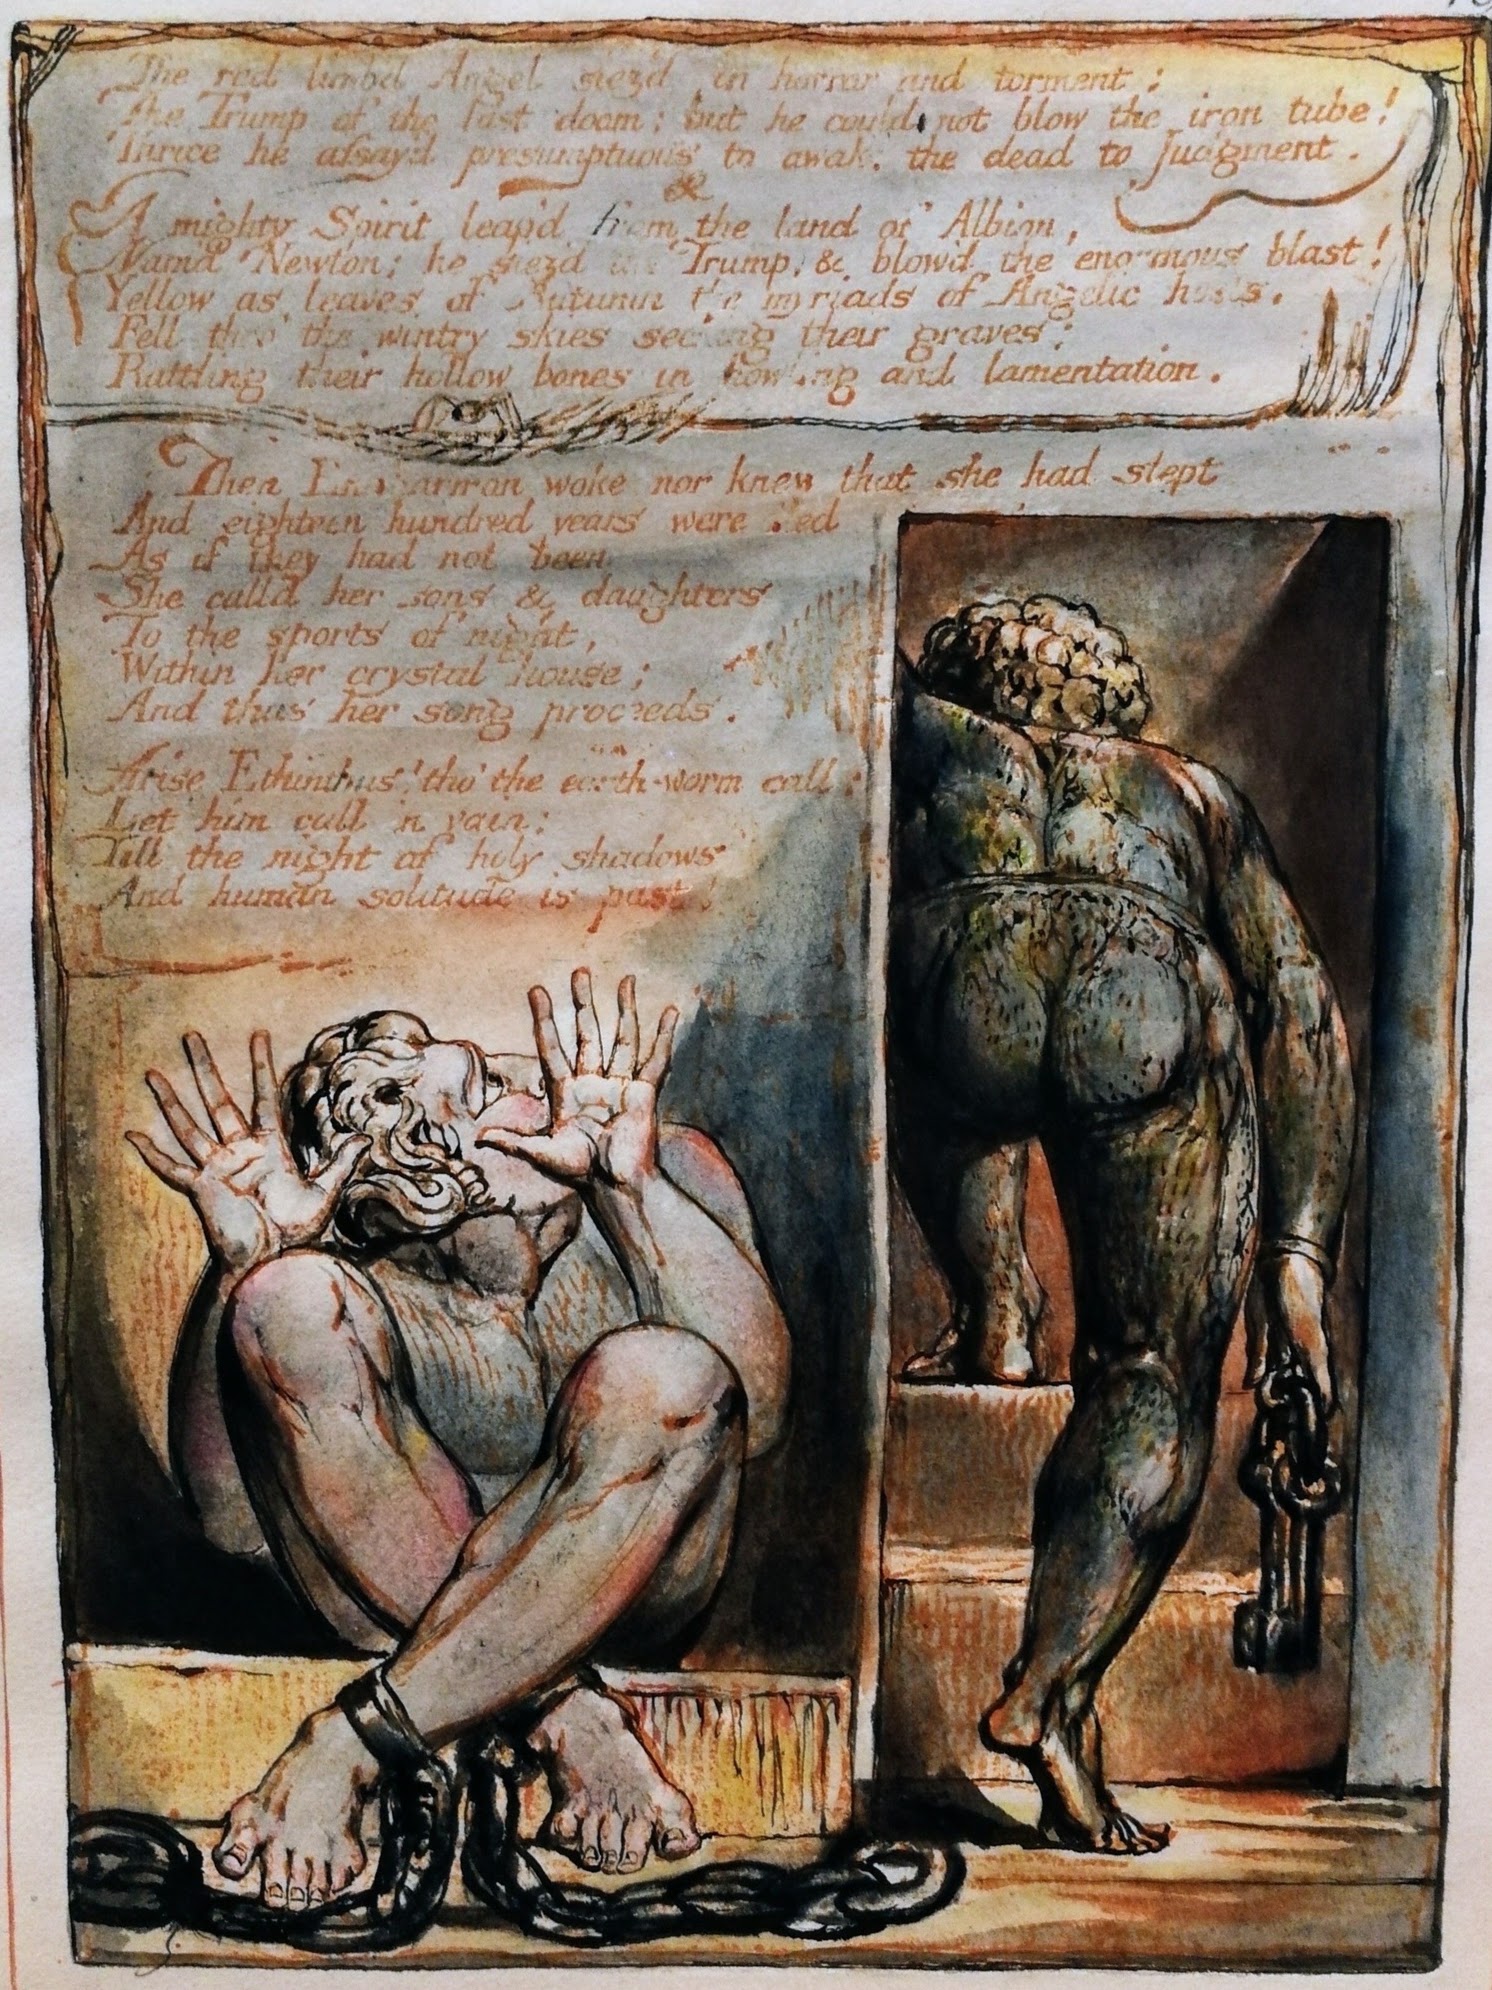 The red limb'd Angel siez'd, in horror and torment;
The Trump of the last doom; but he could not blow the iron tube!
Thrice he assay'd presumptuous to awake the dead to Judgment.
A mighty Spirit leap'd from the land of Albion,
Nam'd Newton; he siez'd the Trump, & blow'd the enormous blast!
Yellow as leaves of Autumn the myriads of Angelic hosts,
Fell thro' the wintry skies seeking their graves;
Rattling their hollow bones in howling and lamentation.
Then Enitharmon woke nor knew that she had slept
And eighteen hundred years were fled
As if they had not been
She calld her sons & daughters
To the sports of night,
Within her crystal house;
And thus her song proceeds.
Arise Ethinthus! tho' the earth-worm call;
Let him call in vain;
Till the night of holy shadows
And human solitude is past!